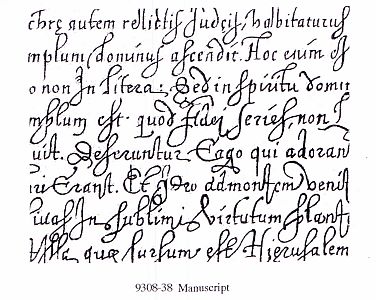 chre autem rellictis Judeis, habitaturus
mplum dominus ascendit. Hoc enim est
o non In litera: Sed in spiritu domin
mplum est. quod fidei series, non l
uit. Deseruntur Ergo qui adoran
ri Erant. Et Ideo ad montem venit
icias In sublimi virtutum plant
Villa quæ sursum est Hierusalem
9308-38 Manuscript